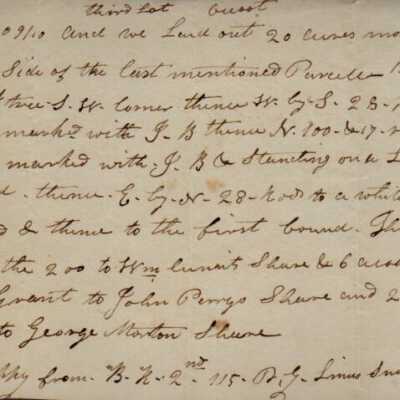 third Lot
09/10 and we Laid out 20 acres mo
Side of the last mentioned Parcell
tree S. W. corner thence W. by S. 28
markd with J. B thence N. 100 & 17
marked with J. B & Standing on a
thence E. by N. 28 Rods to a white
& thence to the first bound. Th
the 200 to Wm Share & 6 acres
Grant to John Perrys Share and 2
to George Morton Share
from B. N. 2nd 115